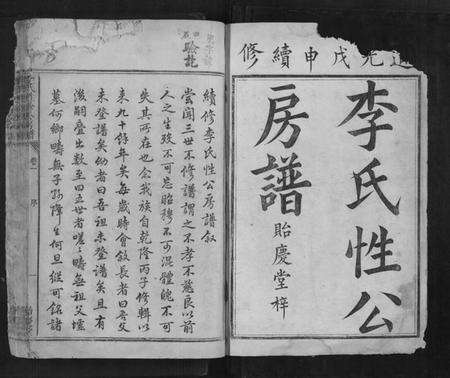 光戊申續修
李氏性公
房譜
貽慶堂梓
驗訖
續修李氏性公房譜敘
嘗聞三世不修譜謂之不孝不慈良以前
人之生歿不可忘昭穆不可混體魄不可
失其所在也念我族自乾隆丙子修輯以
來九十餘年矣每歲時會敘長者曰吾父
未登譜矣幼者曰吾祖未登譜矣且有
後嗣疊出數至四五世者嗟嗟每祖父墳
墓何鄉疇無子孫降生何旦縱可銘諸
卷一
序